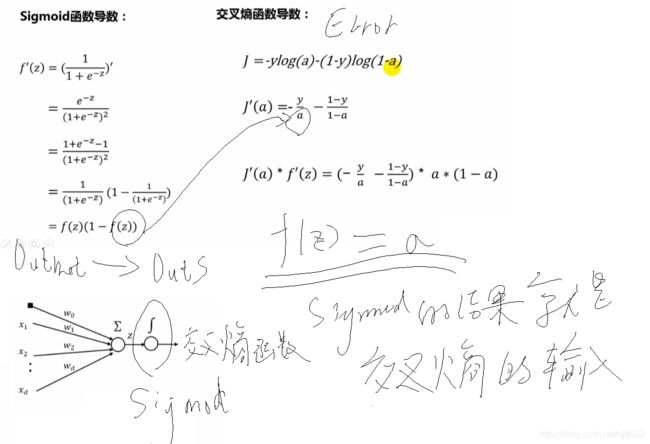 Sigmoid函数导数：
f′(z) = (1/(1 + e^{-z}))′
= e^{-z}/(1+e^{-z})^2
= (1+e^{-z}-1)/(1+e^{-z})^2
= 1/(1+e^{-z}) (1 - 1/(1+e^{-z}))
= f(z)(1 - f(z))
交叉熵函数导数：
Error
J =-ylog(a)-(1-y)log(1-a)
J′(a) =- y/a - (1-y)/(1-a)
J′(a) * f′(z) = (- y/a - (1-y)/(1-a)) * a∗(1 − a)
f(z) = a
Outnet → Outs
Sigmod的结果就是
交叉熵的输入
w_0
x_1 w_1
x_2 w_2
⋮
x_d w_d
Σ z ∫
交叉熵函数
Sigmod